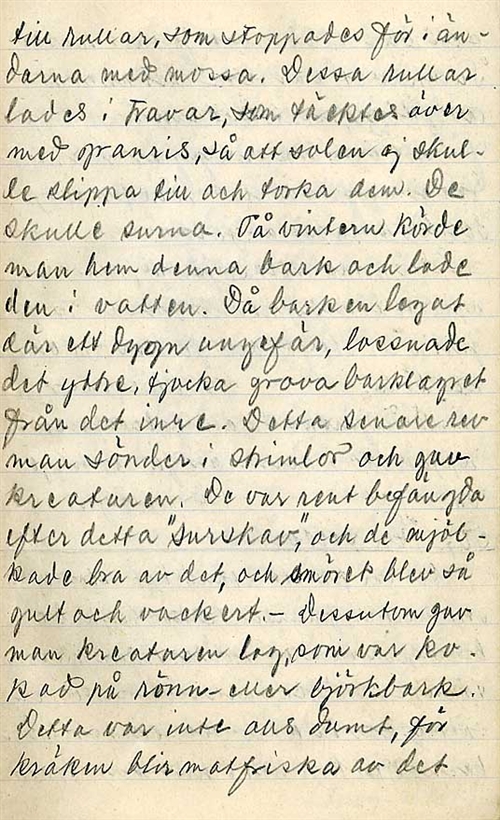 till rullar, som stoppades för i än-
darna med mossa. Dessa rullar
lades i travar, som täcktes över
med granris, så att solen ej skul-
le slippa till och torka dem. De
skulle surna. På vintern körde
man hem denna bark och lade
den i vatten. Då barken legat
där ett dygn ungefär, lossnade
det yttre, tjocka grova barklagret
från det inre. Detta senare rev
man sönder i strimlor och gav
kreaturen. De var rent begängda
efter detta "surskav," och de mjöl-
kade bra av det, och smöret blev så
gult och vackert. – Dessutom gav
man kreaturen lag, som var ko-
kad på rönn- eller björkbark.
Detta var inte alls dumt, för
kräken blir matfriska av det